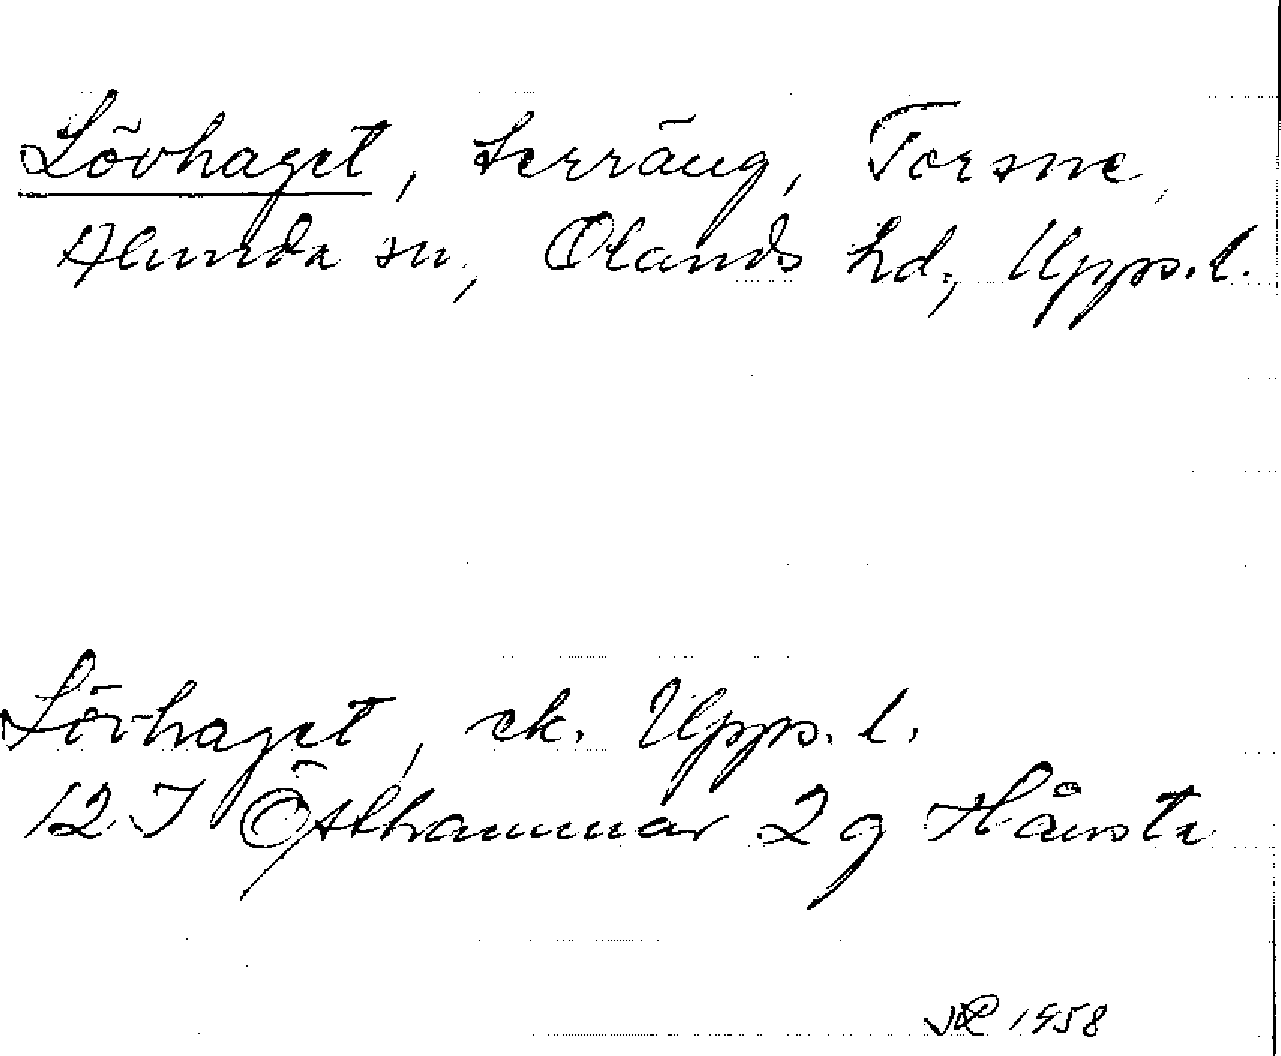 Lövhaget, terräng, Torsne,
Alunda sn, Olands hd, Upps. l.
Lövhaget, ek. Upps. l.
12 I Östhammar 2 g Hånsta
1958